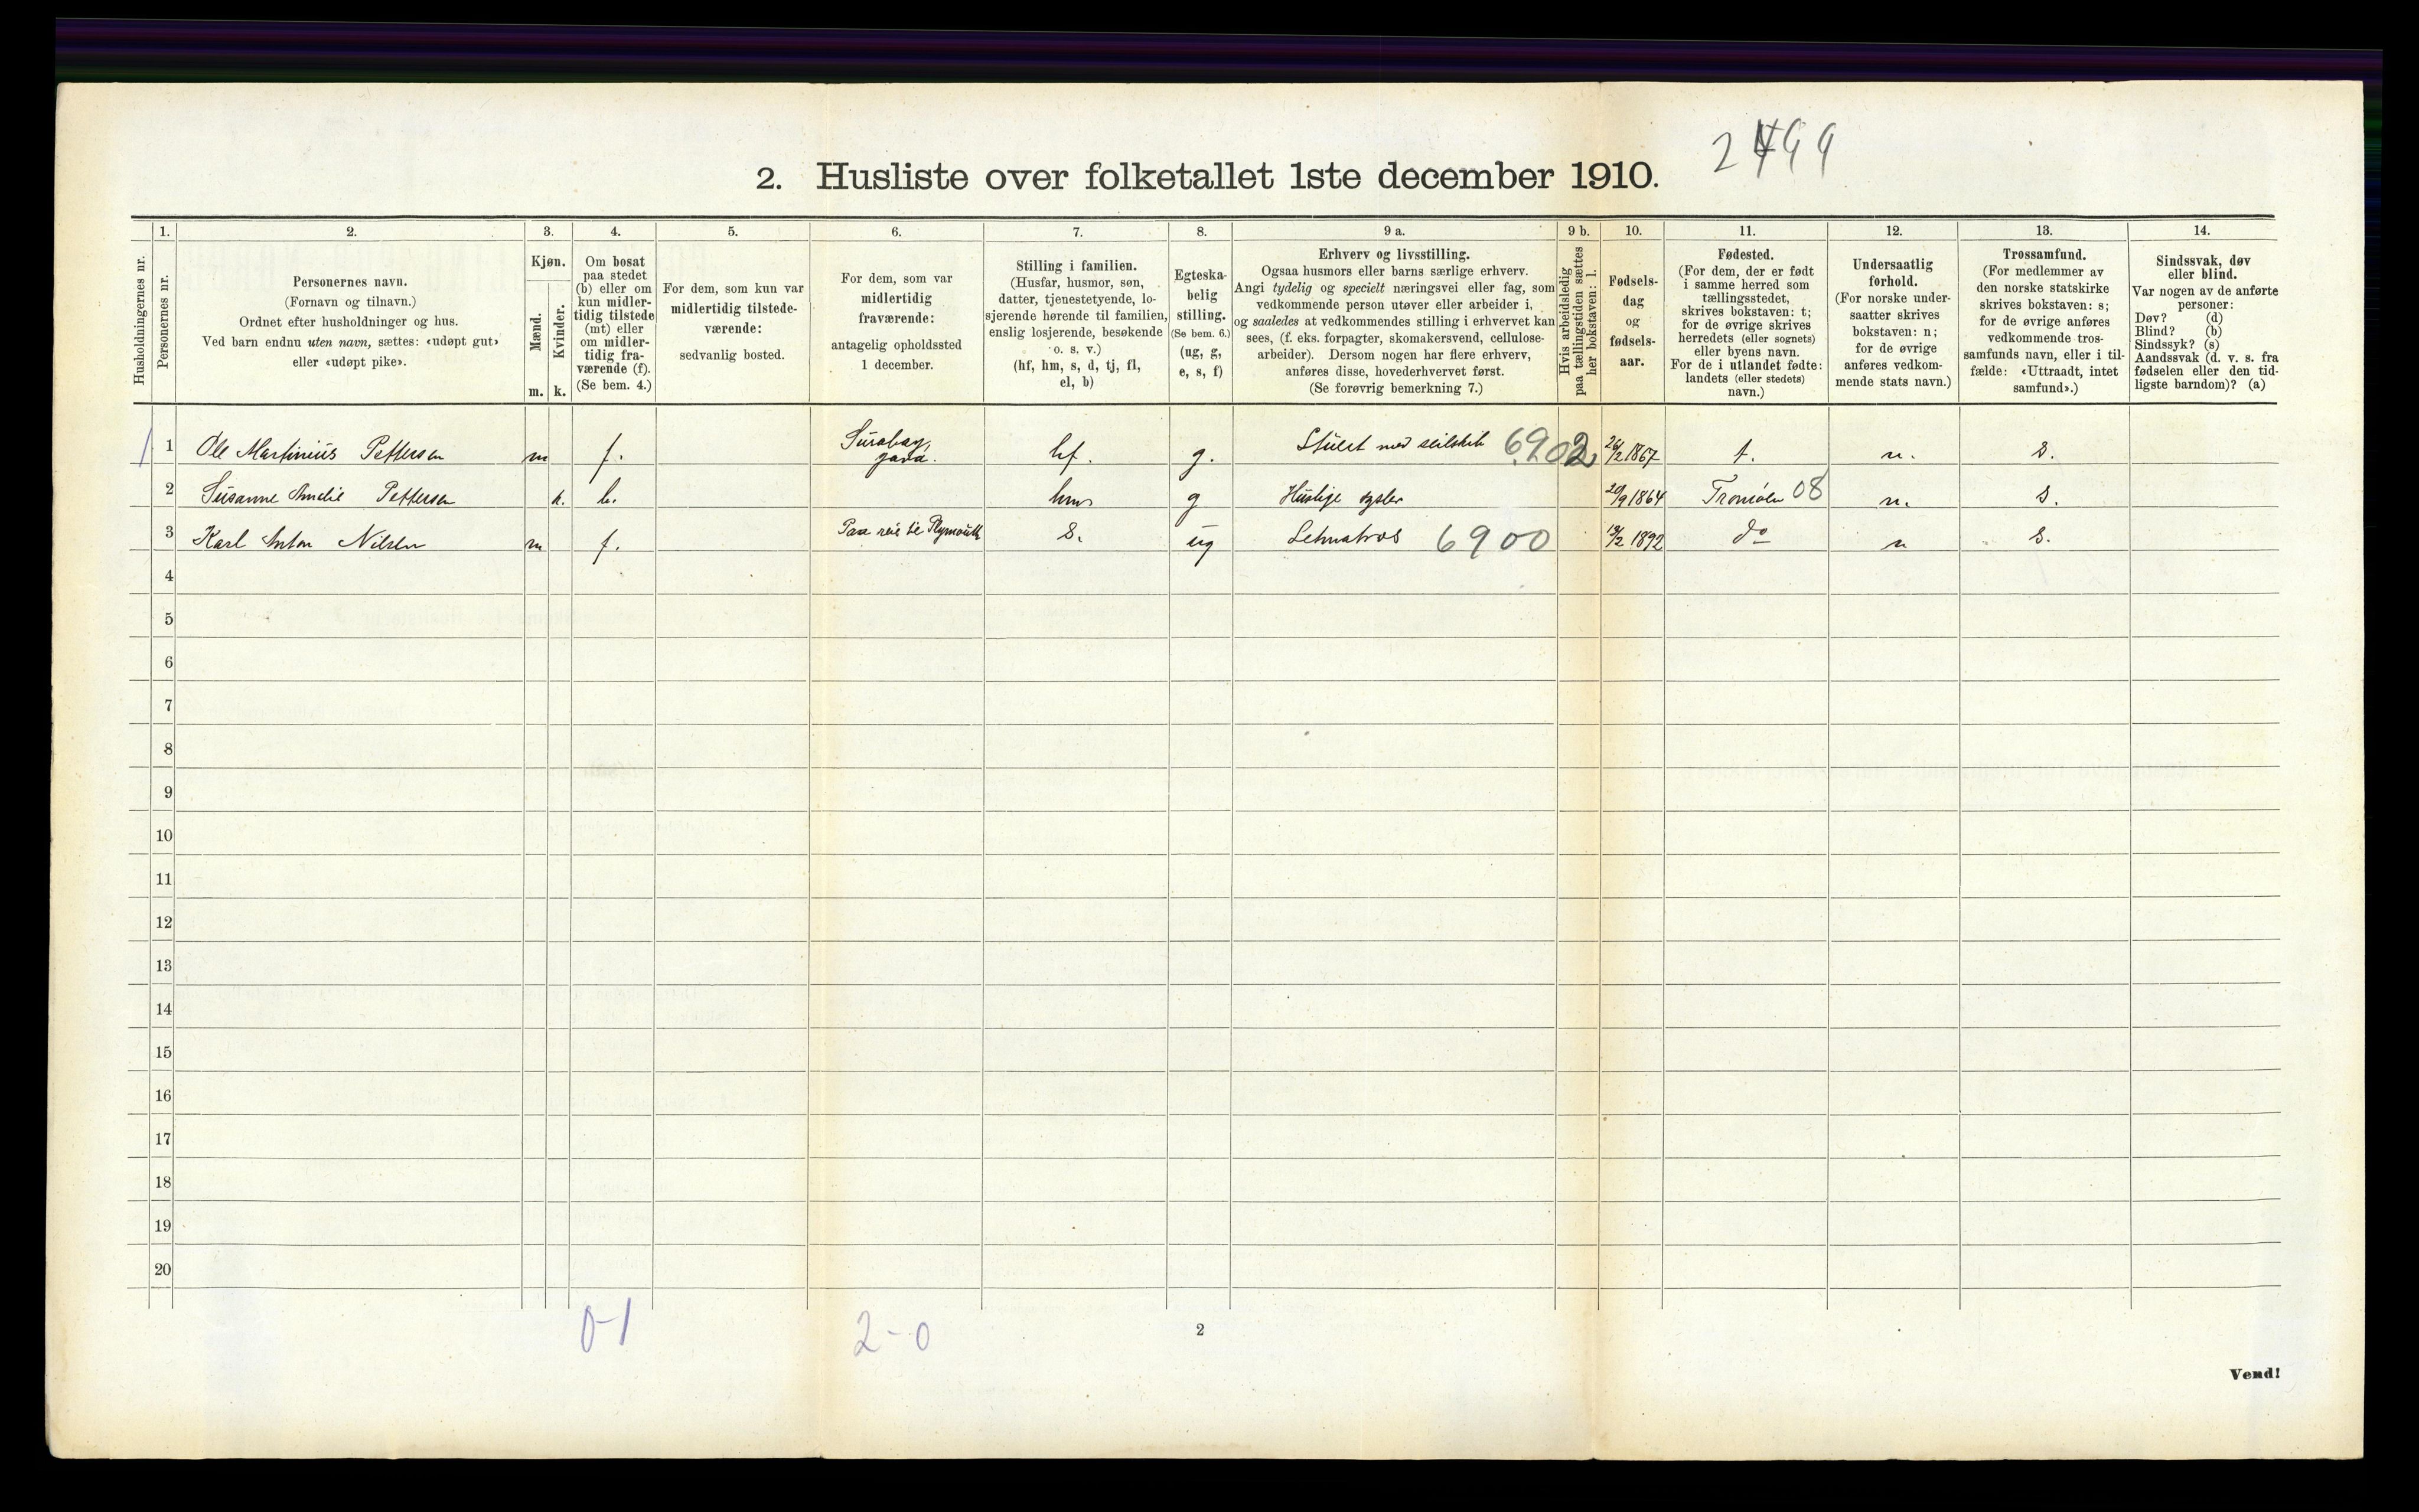 2499
2. Husliste over folketallet 1ste december 1910.
Husholdningernes nr.
1.
Personernes nr.
2.
Personernes navn.
(Fornavn og tilnavn.)
Ordnet efter husholdninger og hus.
Ved barn endnu uten navn, sættes: «udøpt gut»
eller «udøpt pike».
3.
Kjøn.
Mænd.
m.
Kvinder.
k.
4.
Om bosat
paa stedet
(b) eller om
kun midler-
tidig tilstede
(mt) eller
om midler-
tidig fra-
værende (f).
(Se bem. 4.)
5.
For dem, som kun var
midlertidig tilstede-
værende:
sedvanlig bosted.
6.
For dem, som var
midlertidig
fraværende:
antagelig opholdssted
1 december.
7.
Stilling i familien.
(Husfar, husmor, søn,
datter, tjenestetyende, lo-
sjerende hørende til familien,
enslig losjerende, besøkende
o. s. v.)
(hf, hm, s, d, tj, fl,
el, b)
8.
Egteska-
belig
stilling.
(Se bem. 6.)
(ug, g,
e, s, f)
9 a.
Erhverv og livsstilling.
Ogsaa husmors eller barns særlige erhverv.
Angi tydelig og specielt næringsvei eller fag, som
vedkommende person utøver eller arbeider i,
og saaledes at vedkommendes stilling i erhvervet kan
sees, (f. eks. forpagter, skomakersvend, cellulose-
arbeider). Dersom nogen har flere erhverv,
anføres disse, hovederhvervet først.
(Se forøvrig bemerkning 7.)
9 b.
Hvis arbeidsledig
paa tællingstiden sættes
her bokstaven: l.
10.
Fødsels-
dag
og
fødsels-
aar.
11.
Fødested.
(For dem, der er født
i samme herred som
tællingsstedet,
skrives bokstaven: t;
for de øvrige skrives
herredets (eller sognets)
eller byens navn.
For de i utlandet fødte:
landets (eller stedets)
navn.)
12.
Undersaatlig
forhold.
(For norske under-
saatter skrives
bokstaven: n;
for de øvrige
anføres vedkom-
mende stats navn.)
13.
Trossamfund.
(For medlemmer av
den norske statskirke
skrives bokstaven: s;
for de øvrige anføres
vedkommende tros-
samfunds navn, eller i til-
fælde: «Uttraadt, intet
samfund».)
14.
Sindssvak, døv
eller blind.
Var nogen av de anførte
personer:
Døv? (d)
Blind? (b)
Sindssyk? (s)
Aandssvak (d. v. s. fra
fødselen eller den tid-
ligste barndom)? (a)
1 1 Ole Martinius Pettersen m f. Surabay, java. hf. g. Stuert med seilskib 6902 26/2 1867 t. n. s.
2 Susanne Amelie Pettersen k. b. hm g Huslige sysler 20/9 1864 Tromøen 08 n. s.
3 Karl Anton Nilsen m f. Paa reis til Plymouth s. ug Letmatros 6900 1892 do n s.
4
5
6
7
8
9
10
11
12
13
14
15
16
17
18
19
20
0-1
2-0
2
Vend!